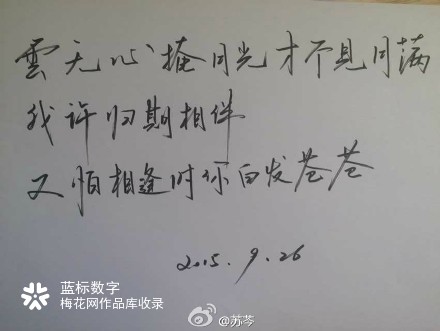 雲无心掩月光才不见月满
我许归期相伴
又怕相逢时你白发苍苍
2015.9.26
蓝标数字
梅花网作品库收录
@苏芩